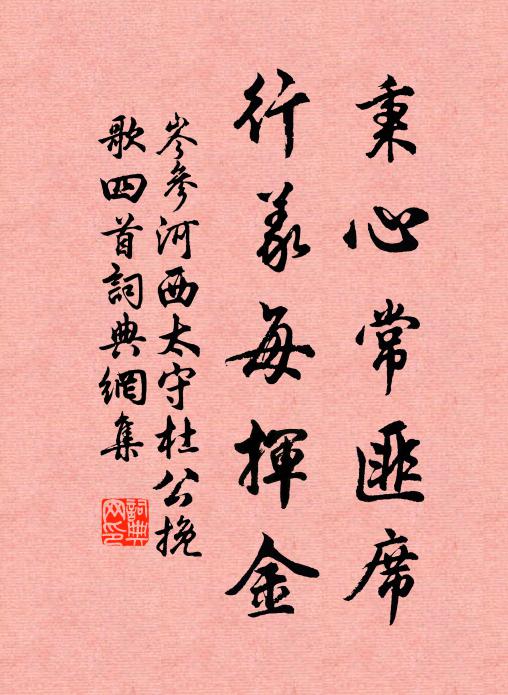 秉心常匪席
行義每揮金
岑參河西太守杜公挽
歌四首詞典網集
詞典
网印